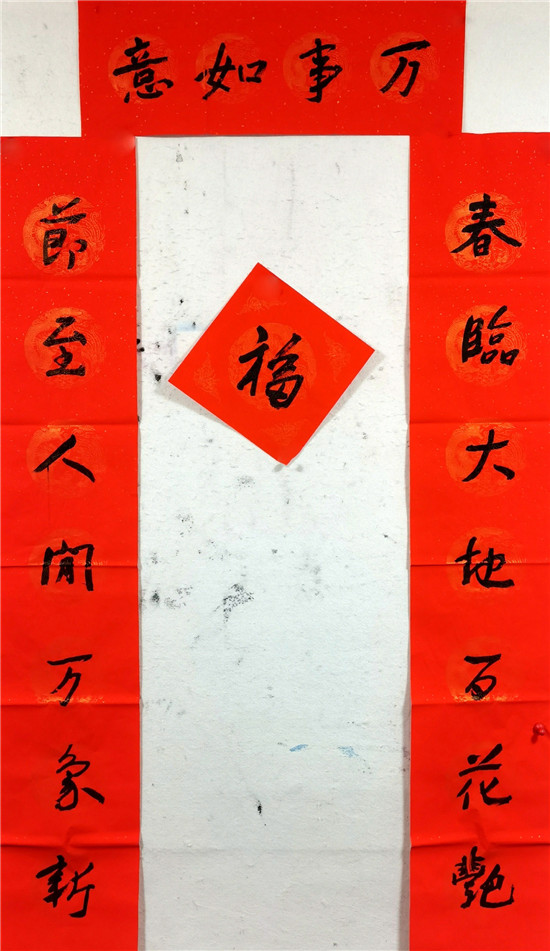 万事如意
春臨大地百花艷
節至人間万象新
福